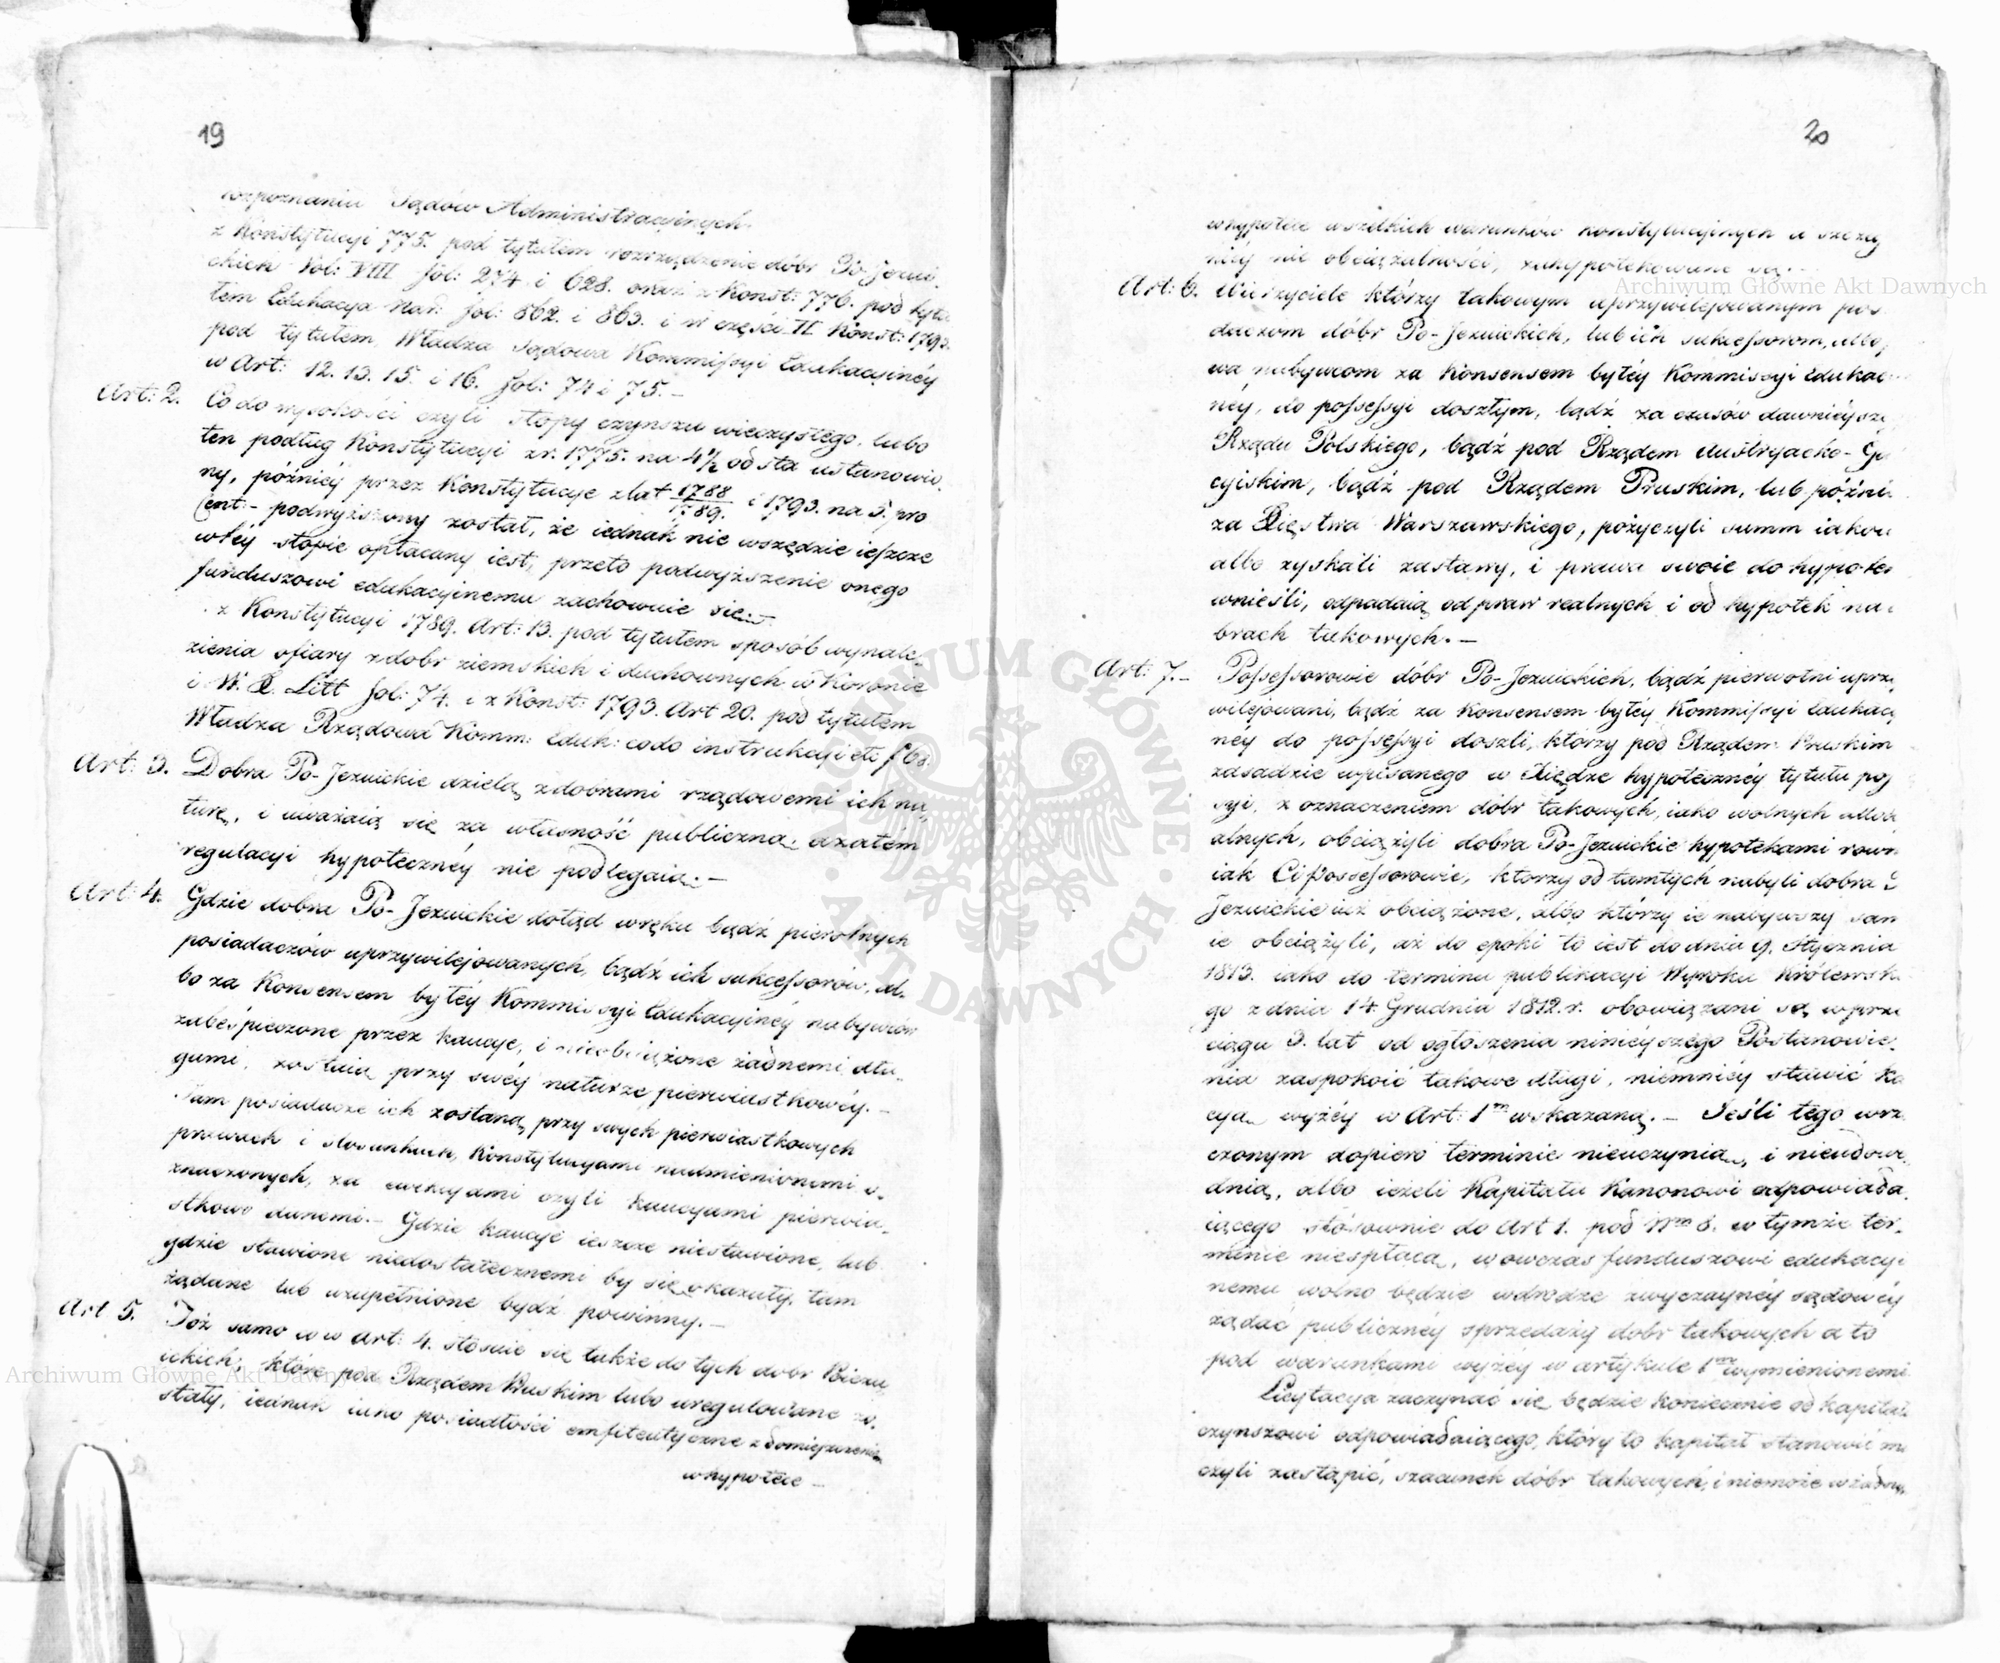 19
rozpoznaniu Sądów Administracyinych.
z Konstytucyi 775. pod tytułem rozrządzenie dóbr Po-Jezui-
ckich Vol: VIII fol: 274 i 628. oraz z Konst: 776. pod tytu
łem Edukacya Nar: fol: 862. i 863. i w części II Konst: 1793.
pod tytułem, Władza Sądowa Kommissyi Edukacyinéy
w Art: 12. 13. 15. i 16. fol: 74 i 75.-
Art: 2. Co do wysokości czyli stopy czynszu wieczystego, lubo
ten podług Konstytucyi z r. 1775. na 4½ od sta ustanowio-
ny, późniéy przez Konstytucye z lat 1788/1789. i 1793. na 5. pro
Cent- podwyższony został, że iednak nie wszędzie ieszcze
w téy stopie opłacany iest, przeto podwyższenie onego
funduszowi edukacyinemu zachowuie się.-
z Konstytucyi 1789. Art: 13. pod tytułem sposób wynale-
zienia ofiary z dobr ziemskich i duchownych w Koronie
i W. X. Litt fol: 74. i z Konst: 1793. Art 20. pod tytułem
Władza Rządowa Komm: Eduk: co do instrukcyi etc f 68.
Art: 3. Dobra Po-Jezuickie dzielą z dobrami rządowemi ich na-
turę, i uważaią się za własność publiczną, a zatém
regulacyi hypotecznéy nie podlegaią.-
Art: 4. Gdzie dobra Po-Jezuickie dotąd w ręku bądź pierotnych
posiadaczów uprzywilejowanych, bądź ich sukcessorów, al-
bo za Konsensem byłéy Kommissyi Edukacyinéy nabywców
zabeśpieczone przez kaucye, i nieobciążone żadnemi dłu-
gami, zostaią przy swéy naturze pierwiastkowéy.-
Tam posiadacze ich zostaną przy swych pierwiastkowych
prawach i stosunkach, Konstytucyami nadmienionemi o-
znaczonych, za ewikcyami czyli kaucyami pierwia-
stkowo danemi.- Gdzie kaucye ieszcze niestawione, lub
gdzie stawione niedostatecznemi by się okazały, tam
żądane lub uzupełnione bydź powinny.-
Art 5. Toż samo co w art: 4. stosuie się także do tych dobr Po Jezu
ickich, które pod Rządem Pruskim lubo uregulowane zo-
stały, iednak iako posiadłości emfiteutyczne z domieszczeniem
w hypotece-
20
w hypotece wszelkich warunków konstytucyinych a szczeg
niéy nie obciążalności, zahypotekowane są.-
Art: 6. Wierzyciele którzy takowym uprzywilejowanym pos
daczom dóbr Po-Jezuickich, lub ich sukcessorom, albo
wa nabywcom za Konsensem byłéy Kommissyi Edukac
néy, do possessyi doszłym, bądź za czasów dawniéysze
Rządu Polskiego, bądź pod Rządem Austryacko-Ga
cyiskim, bądź pod Rządem Pruskim, lub późni
za Xięstwa Warszawskiego, pożyczyli summ iakow
albo zyskali zastawy, i prawa swoie do hypotek
wnieśli, odpadaią od praw realnych i od hypotek na
brach takowych.-
Art: 7.- Possessorowie dóbr Po-Jezuickich, bądź pierwotni uprzy
wilejowani, bądź za Konsensem byłéy Kommissyi Edukacy
ney do possessyi doszli, którzy pod Rządem Pruskim
zasadzie wpisanego w Xiędze hypotecznéy tytułu pos
syi, z oznaczeniem dóbr takowych, iako wolnych allodi
alnych, obciążyli dobra Po-Jezuickie hypotekami rown
iak Ci possessorowie, ktorzy od tamtych nabyli dobra P
Jezuickie iuż obciążone, albo którzy ie nabywszy sam
ie obciążyli, aż do epoki to iest do dnia 9. Stycznia
1813. iako do terminu publikacyi Wyroku Królewsk
go z dnia 14. Grudnia 1812. r. obowiązani są w prze
ciągu 3. lat od ogłoszenia ninieyszego Postanowie-
nia zaspokoić takowe długi, niemniéy stawić ka
cyą wyżéy w Art: 1m wskazaną.- Jeśli tego w rz
czonym dopiero terminie nieuczynią, i nieudowo-
dnią, albo ieżeli Kapitału Kanonowi odpowiada
iącego stósownie do Art 1. pod Nro 3. w tymże ter-
minie niespłacą, wowczas funduszowi edukacyi
nemu wolno będzie w drodze zwyczaynéy sądowéy
żądać publicznéy sprzedaży dobr takowych a to
pod warunkami wyżéy w artykule 1m wymienionemi
Licytacya zaczynać się będzie koniecznie od kapitału
czynszowi odpowiadaiącego, który to kapitał stanowić ma
czyli zastąpić, szacunek dóbr takowych, i niemoże w żadnym